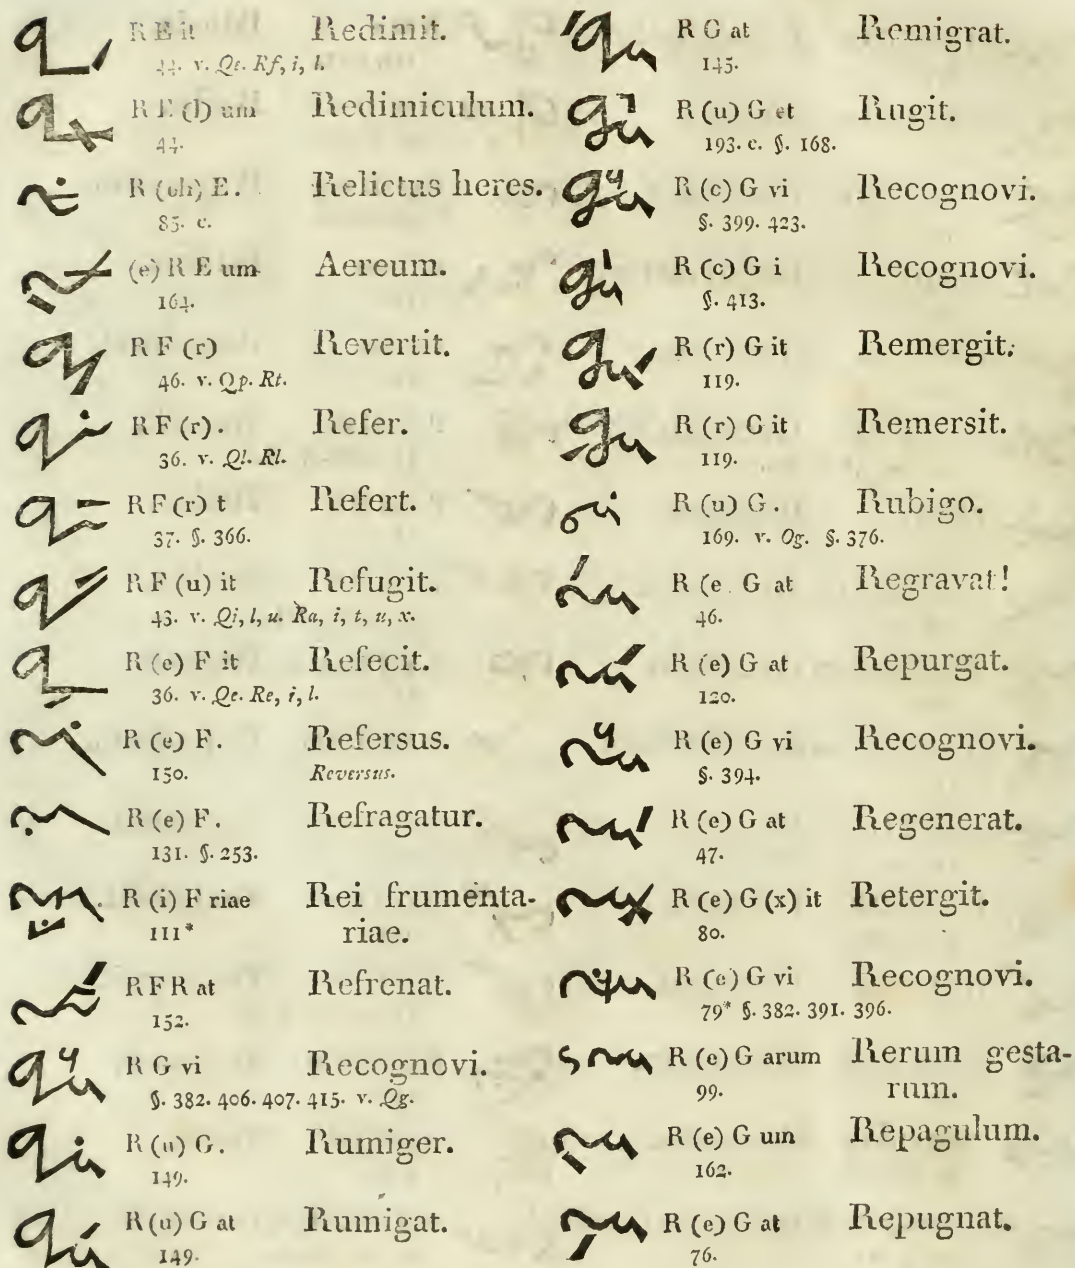 R E it Redimit.
44. v. Qe. Rf, i, l.
R E (l) um Redimiculum.
44.
R (eh) E. Relictus heres.
85. c.
(e) R E um Aereum.
164.
R F (r) Revertit.
46. v. Qp. Rt.
R F (r). Refer.
36. v. Ql. Rl.
R F (r) t Refert.
37. §. 366.
R F (u) it Refugit.
43. v. Qi, l, u. Ra, i, t, u, x.
R (e) F it Refecit.
36. v. Qe. Re, i, l.
R (e) F. Refersus.
150. Reversus.
R (e) F. Refragatur.
131. §. 253.
R (i) F riae Rei frumenta-
111* riae.
R F R at Refrenat.
152.
R G vi Recognovi.
§. 382. 406. 407. 415. v. Qg.
R (u) G. Rumiger.
149.
R (u) G at Rumigat.
149.
R G at Remigrat.
145.
R (u) G et Rugit.
193. c. §. 168.
R (c) G vi Recognovi.
§. 399. 423.
R (c) G i Recognovi.
§. 413.
R (r) G it Remergit.
119.
R (r) G it Remersit.
119.
R (u) G. Rubigo.
169. v. Og. §. 376.
R (e G at Regravat!
46.
R (e) G at Repurgat.
120.
R (e) G vi Recognovi.
§. 394.
R (e) G at Regenerat.
47.
R (e) G (x) it Retergit.
80.
R (e) G vi Recognovi.
79* §. 382. 391. 396.
R (e) G arum Rerum gesta-
99. rum.
R (e) G um Repagulum.
162.
R (e) G at Repugnat.
76.